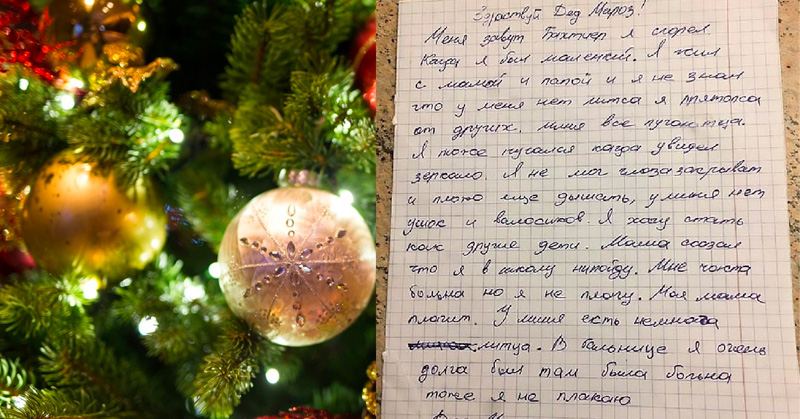 Здраствуй Дед Мароз!
Меня завут Бахтиер я сгорел
Когда я был маленкий. Я жил
с мамой и папой и я не знал
что у меня нет литса я прятолса
от других. миня все пугаютца.
Я тоже пугался когда увидел
зеркало. Я не мог глоза закрыват
и плохо еще дышать, у миня нет
ушок и валосиков. Я хочу стать
как другие дети. Мама сказал
что я в школу нипойду. Мне часта
больна но я не плачу. Моя мама
плачит. У миня есть немнога
литца. В больнице я очень
долга был там была больна
тоже я не плакаю